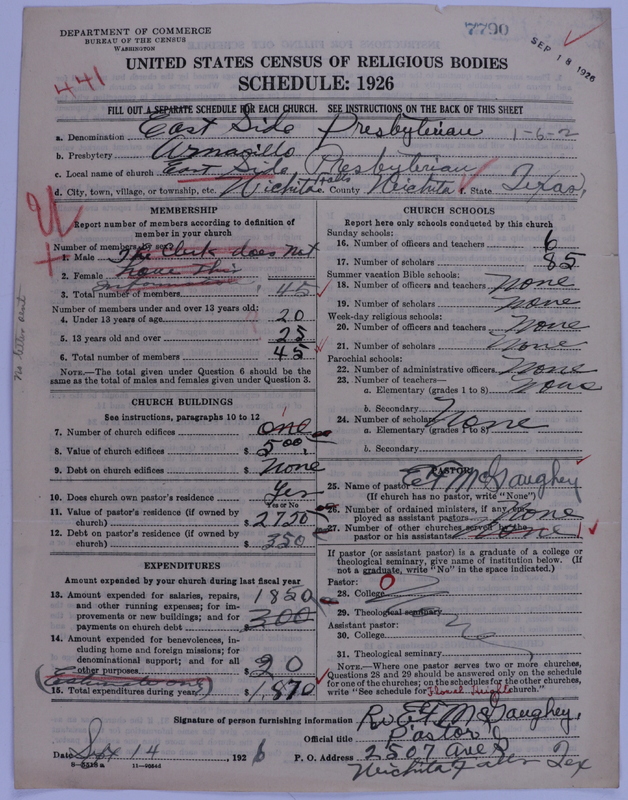 DEPARTMENT OF COMMERCE
BUREAU OF THE CENSUS
WASHINGTON
7790
SEP 18 1926
441
UNITED STATES CENSUS OF RELIGIOUS BODIES
SCHEDULE: 1926
FILL OUT A SEPARATE SCHEDULE FOR EACH CHURCH. SEE INSTRUCTIONS ON THE BACK OF THIS SHEET
a. Denomination East Side Presbyterian 1-6-2
b. Presbytery Armarillo
c. Local name of church East Side Presbyterian
d. City, town, village, or township, etc. Wichita Falls e. County Wichita f. State Texas
MEMBERSHIP
Report number of members according to definition of
member in your church
Number of members by sex:
1. Male The Clerk does not
2. Female have this
information
3. Total number of members 45
Number of members under and over 13 years old:
4. Under 13 years of age 20
5. 13 years old and over 25
6. Total number of members 45
NOTE.—The total given under Question 6 should be
the same as the total of males and females given under Question 3.
No letter sent
CHURCH BUILDINGS
See instructions, paragraphs 10 to 12
7. Number of church edifices one 1
8. Value of church edifices $ 500
9. Debt on church edifices $ None
10. Does church own pastor's residence Yes
Yes or No
11. Value of pastor's residence (if owned by
church) $ 2750
12. Debt on pastor's residence (if owned by
church) $ 350
EXPENDITURES
Amount expended by your church during last fiscal year
13. Amount expended for salaries, repairs,
and other running expenses; for im-
provements or new buildings; and for
payments on church debt $ 1850
300
14. Amount expended for benevolences, in-
cluding home and foreign missions; for
denominational support; and for all
other purposes $ 20
15. Total expenditures during year $ 1870
CHURCH SCHOOLS
Report here only schools conducted by this church
Sunday schools:
16. Number of officers and teachers 6
17. Number of scholars 85
Summer vacation Bible schools:
18. Number of officers and teachers None
19. Number of scholars None
Week-day religious schools:
20. Number of officers and teachers None
21. Number of scholars None
Parochial schools:
22. Number of administrative officers None
23. Number of teachers—
a. Elementary (grades 1 to 8) None
b. Secondary
24. Number of scholars— None
a. Elementary (grades 1 to 8)
b. Secondary
PASTOR
25. Name of pastor E F McGaughey
(If church has no pastor, write "None")
26. Number of ordained ministers, if any, em-
ployed as assistant pastors None
27. Number of other churches served by the
pastor or his assistants None 1
If pastor (or assistant pastor) is a graduate of a college or
theological seminary, give name of institution below. (If
not a graduate, write "No" in the space indicated.)
Pastor: O
28. College
29. Theological seminary
Assistant pastor:
30. College
31. Theological seminary
NOTE.—Where one pastor serves two or more churches,
Questions 28 and 29 should be answered only on the schedule
for one of the churches; on the schedules for the other churches,
write "See schedule for Floral Heights church."
Signature of person furnishing information Rev E F McGaughey,
Official title Pastor
Date Sept 14, 1926 P. O. Address 2507 Ave S
8—5318 a 11—9664d Wichita Falls Tex